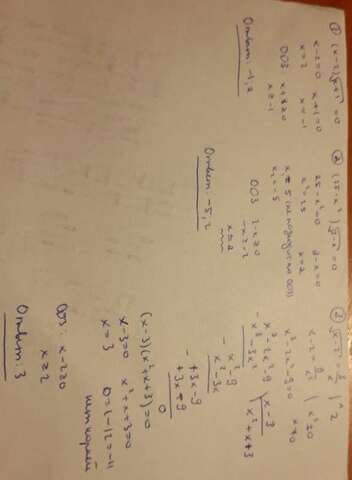 ① (x-2)√x+1 = 0
x-2=0 x+1=0
x=2 x=-1
ОДЗ: x+1≥0
x≥-1
Ответ: -1, 2
② (25-x²)√2-x = 0
25-x²=0 2-x=0
x²=25 x=2
x₁=5 (не подходит по ОДЗ)
x₂=-5
ОДЗ 2-x≥0
-x≥-2
x≤2
Ответ: -5, 2
x-2=9/x² | x²≠0
x³-2x²-9=0 x≠0
x³-2x²-9 | x-3
x³-3x² | x²+x+3
x²-9
x²-3x
+3x-9
+3x-9
0
(x-3)(x²+x+3)=0
x-3=0 x²+x+3=0
x=3 D=1-12=-11
нет корней
ОДЗ: x-2≥0
x≥2
Ответ: 3